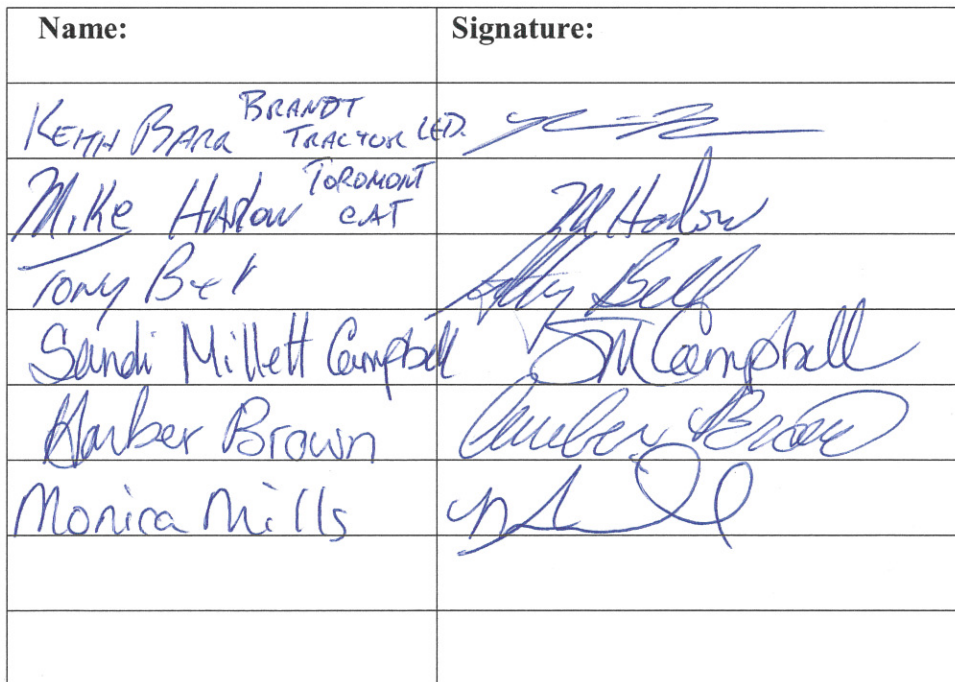 Name: Signature:
KEITH BARR BRANDT TRACTOR LTD.
Mike Harlow TOROMONT CAT M Harlow
Tony Bell Bell
Sandi Millett Campbell SMCampbell
Amber Brown Amber Brown
Monica Mills